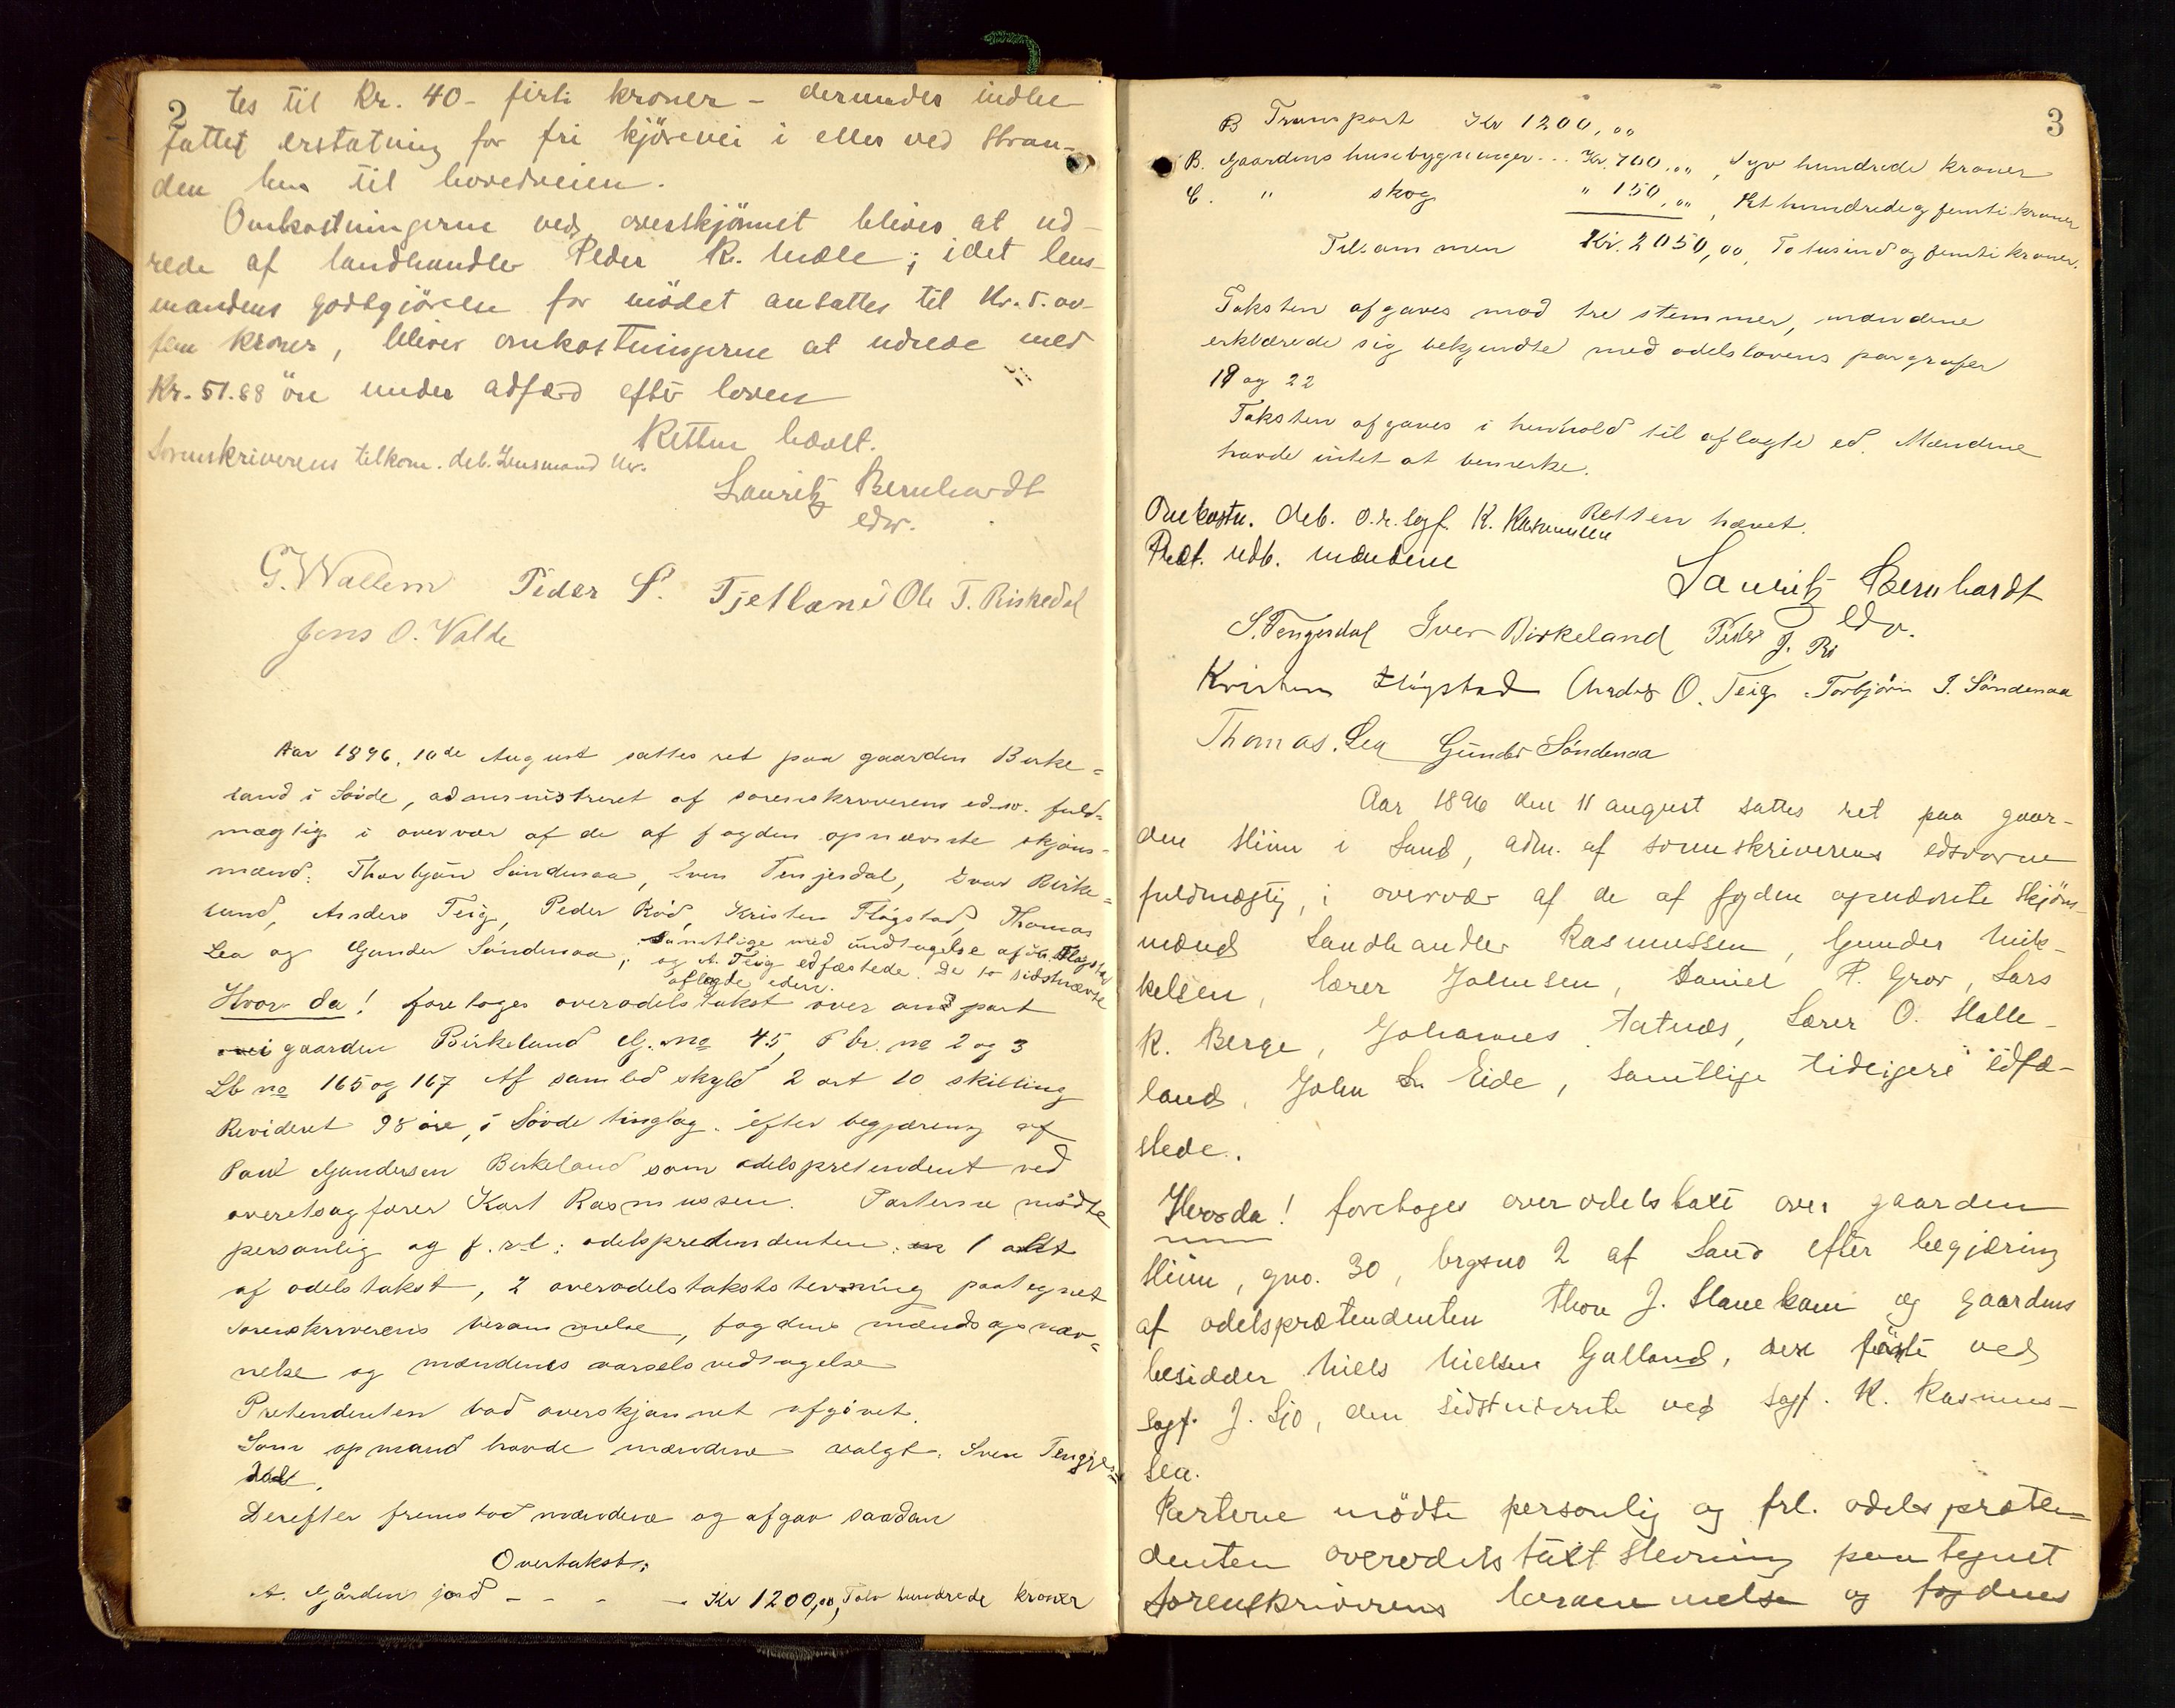 2
tes til Kr. 40 - firti kroner - derunder indbe-
fattet erstatning for fri kjörevei i eller ved stran-
den hen til hovedveien.
Omkostningerne ved overskjönnet bliver at ud-
rede af landhandler Peder R. ; idet lens-
mandens godtgjörelse for mödet ansattes til Kr. 5.00
fem kroner, bliver omkostningerne at udrede med
Kr. 51.68 öre under adfærd efter loven
Retten hævet.
Sorenskriverens tilkom. deb. Lensmand
Lauritz Bernhardt
edsv.
G. Wallem Peder S. Tjetland Ole T. Riskedal
Jens O. Valde
Aar 1896, 10de August sattes ret paa gaarden Birke=
land i Sövde, administreret af sorenskriverens edsv. fuld=
mægtig i overvær af de af fogden opnævnte skjöns-
mænd: Thorbjörn Söndenaa, Sven Tengesdal, Ivar Birke=
land, Anders Teig, Peder Röd, Kristen Flögstad, Thomas
Lea og Gunder Söndenaa; samtlige med undtagelse af Kr. Flögstad
og A. Teig edfæstede. De to sidstnævnte
aflagde eden.
Hvor da! foretoges overodelstakst over part
i gaarden Birkeland G. no 45, Br. no 2 og 3
Lb no 165 og 167 Af samled skyld 2 ort 10 skilling
Revideret 98 öre, i Sövde tinglag. efter begjæring af
Paul Gundersen Birkeland som odelspretendent ved
overetsagförer Karl Rasmussen. Parterne mödte
personlig og f. r. l: odelspredendenten: 1 akt
af odelstakst, 2 overodelstakststevning paategnet
sorenskriverens berammelse, fogdens mændsopnæv=
nelse og mændenes varselsvedtagelse
Pretendenten bad overskjønnet afgivet.
Som opmand havde mændene valgt: Sven Tengjes=
dal.
Derefter fremstod mændene og afgav saadan
Overtakst:
A. Gårdens jord - - - - Kr 1200,00, Tolv hundrede kroner
3
B Transport Kr 1200,00
B. Gaardens husebygninger... Kr. 700,00, Syv hundrede kroner
C. " skog " 150,00, Et hundrede og femti kroner
Tilsammen Kr. 2050,00, To tusind og femti kroner.
Taksten afgaves mod tre stemmer, mændene
erklærede sig bekjendte med odelslovens paragrafer
19 og 22
Taksten afgaves i henhold til aflagte ed. Mændene
havde intet at bemerke.
Retten hævet.
Omkostn. deb. o.r. sagf. K. Rasmussen
Præt. udb. mændene
Lauritz Bernhardt
edsv.
S. Tengesdal Iver Birkeland Peder J. Rö
Kristen Flögstad Anders O. Teig Torbjörn T. Söndenaa
Thomas. Lea Gunder Söndenaa
Aar 1896 den 11 august sattes ret paa gaar-
den Hiim i Sand, adm. af sorenskriverens edsvorne
fuldmægtig, i overvær af de af fogden opnævnte skjöns-
mænd Landhandler Rasmussen, Gunder Mik-
kelsen, lærer Johnsen, Daniel P. Grov, Lars
R. Berge, Johannes Tatnæs, Lærer O. Halle-
land, John L. Eide, samtlige tidligere edfæ-
stede.
Hvor da! foretoges overodelstaxt over gaarden
Hiim, gno. 30, brgsno 2 af Sand efter begjæring
af odelsprætendenten Thore J. Slanekam og gaardens
besidder Niels Nielsen Galland, den förste ved
sagf. J. Sjo, den sidstnævnte ved sagf. K. Rasmus-
sen.
Parterne mödte personlig og frl. odelspræten-
denten overodelstaxt stevning paategnet
sorenskriverens berammelse og fogdens